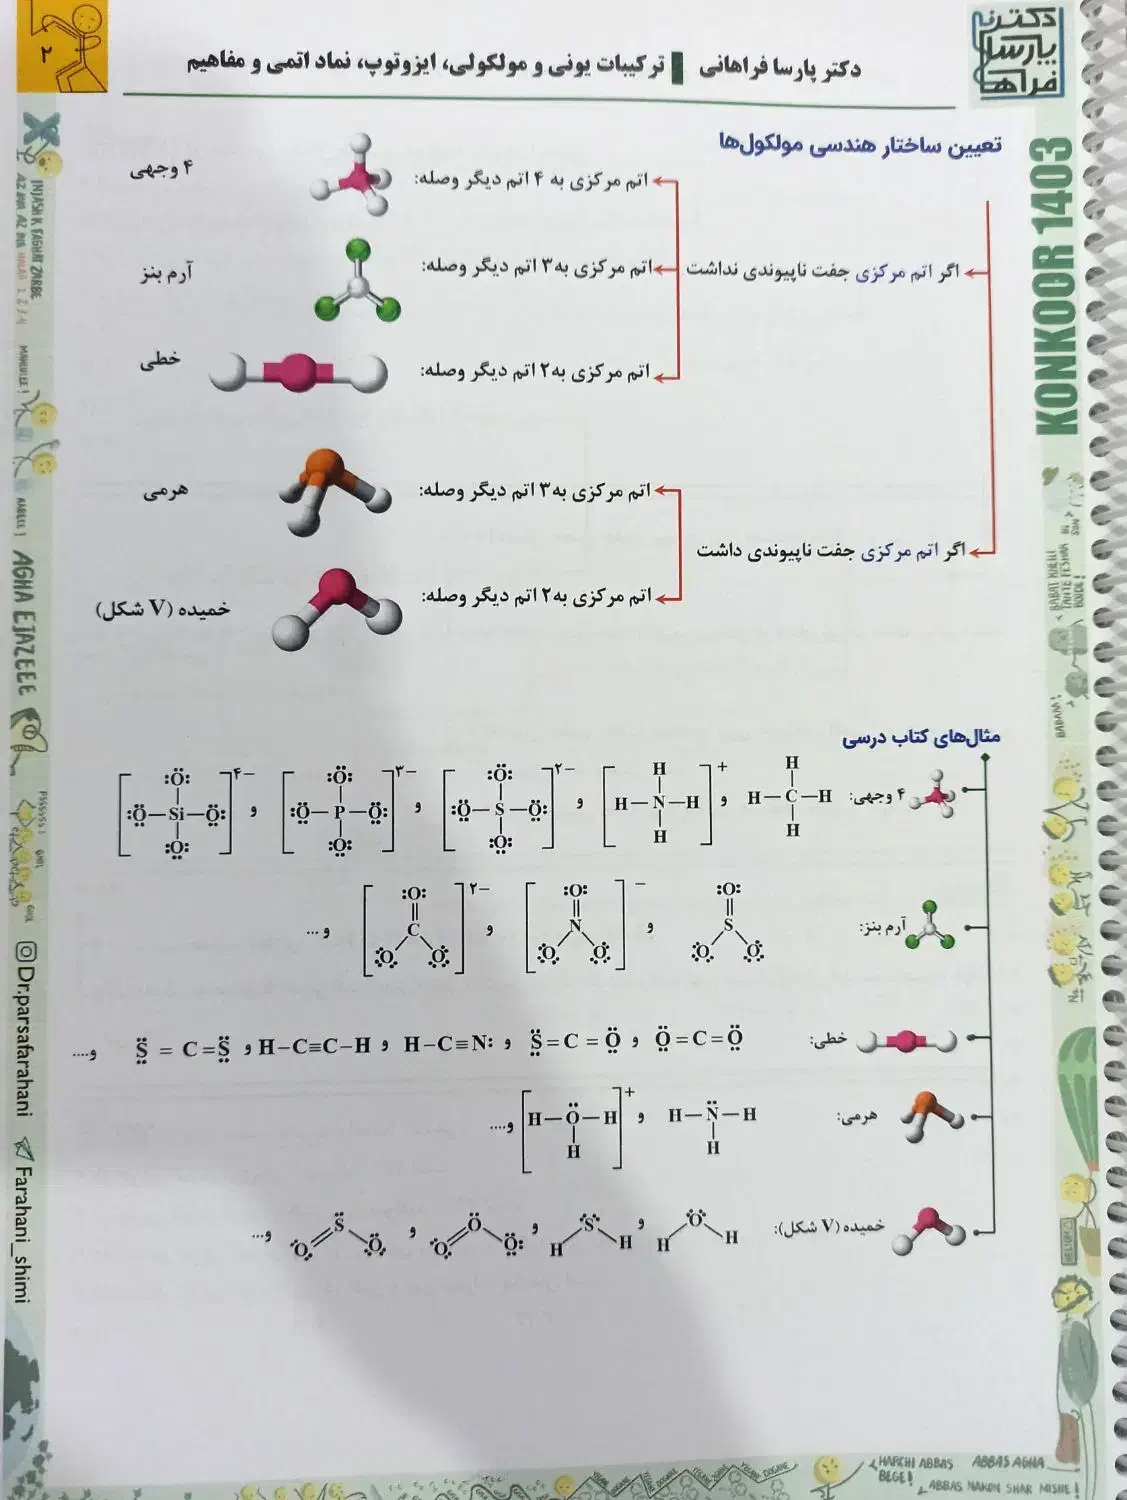 ۲
دکتر پارسا فراهانی ترکیبات یونی و مولکولی، ایزوتوپ، نماد اتمی و مفاهیم
دکتر
پارسا
فراها
KONKOOR 1403
تعیین ساختار هندسی مولکول‌ها
اگر اتم مرکزی جفت ناپیوندی نداشت
اتم مرکزی به ۴ اتم دیگر وصله:
۴ وجهی
اتم مرکزی به ۳ اتم دیگر وصله:
آرم بنز
اتم مرکزی به ۲ اتم دیگر وصله:
خطی
اگر اتم مرکزی جفت ناپیوندی داشت
اتم مرکزی به ۳ اتم دیگر وصله:
هرمی
اتم مرکزی به ۲ اتم دیگر وصله:
خمیده (V شکل)
مثال‌های کتاب درسی
۴ وجهی:
H
H—C—H
H
و
H
H—N—H
H
+
و
:Ö:
:Ö—S—Ö:
:O:
۲−
و
:Ö:
:Ö—P—Ö:
:O:
۳−
و
:Ö:
:Ö—Si—Ö:
:O:
۴−
آرم بنز:
:O:
S
O O
و
:O:
N
O O
−
و
:O:
C
O O
۲−
و ...
خطی:
Ö=C=Ö و S̈=C=Ö و H−C≡N: و H−C≡C−H و S̈=C=S̈ و....
هرمی:
H—N̈—H
H
و
H—Ö—H
H
+
و....
خمیده (V شکل):
O
H H
و
S
H H
و
Ö
O O:
و
S̈
O O
و...
INJASH K FAGHAT ZARBE
AGHA EJAZEEE
Dr.parsafarahani
Farahani_shimi
BABAM!
HARCHI ABBAS
BEGE!
ABBAS AGHA
ABBAS NAKON SHAR MISHE!